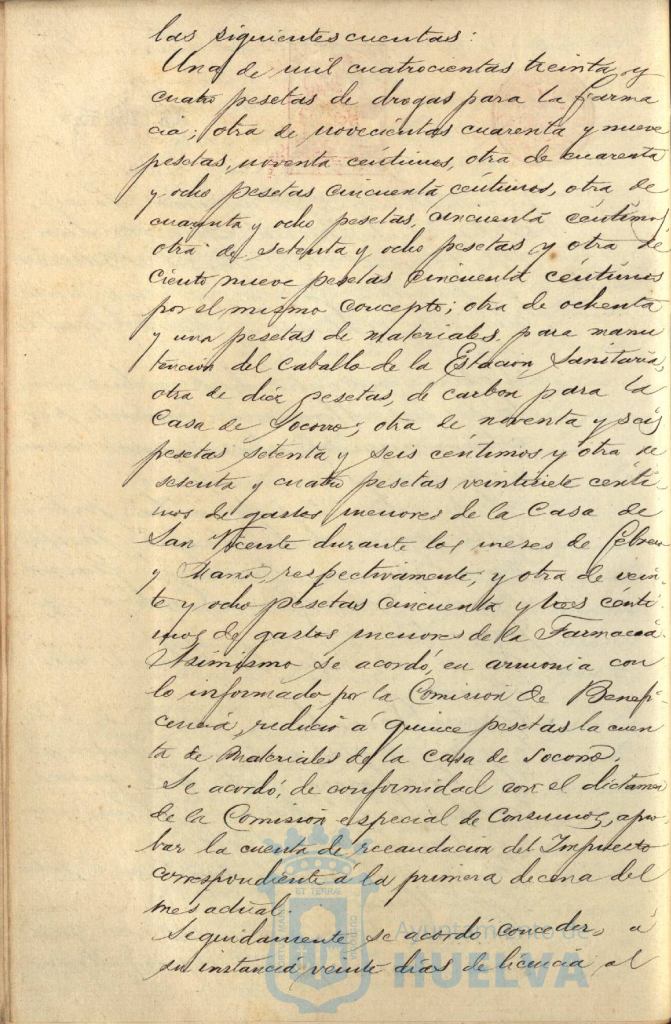 las siguientes cuentas:
Una de mil cuatrocientas treinta y
cuatro pesetas de drogas para la farma
cia; otra de novecientas cuarenta y nueve
pesetas, noventa céntimos, otra de cuarenta
y ocho pesetas cincuenta céntimos, otra de
cuarenta y ocho pesetas, cincuenta céntimos,
otra de setenta y ocho pesetas y otra de
ciento nueve pesetas cincuenta céntimos
por el mismo concepto; otra de ochenta
y una pesetas de materiales para manu
tencion del caballo de la Estacion Sanitaria,
otra de diez pesetas, de carbon para la
Casa de Socorro; otra de noventa y seis
pesetas setenta y seis céntimos y otra de
setenta y cuatro pesetas veintisiete cénti-
mos de gastos menores de la Casa de
San Vicente durante los meses de Febrero
y Marzo, respectivamente, y otra de vein-
te y ocho pesetas cincuenta y tres cénti
mos de gastos menores de la Farmacia.
Asimismo se acordó, en armonia con
lo informado por la Comision de Benefi-
cencia, reducir á quince pesetas la cuen
ta de materiales de la Casa de Socorro.
Se acordó, de conformidad con el dictamen
de la Comision especial de Consumos, apro
bar la cuenta de recaudacion del Impuesto
correspondiente á la primera decena del
mes actual.
Seguidamente se acordó conceder, á
su instancia veinte dias de licencia al
Ayuntamiento de
HUELVA